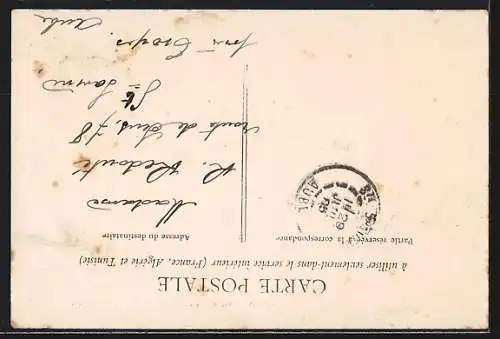 CARTE POSTALE
à utiliser seulement dans le service intérieur (France, Algérie et Tunisie)
Partie réservée à la correspondance
Adresse du destinataire
Madame
R. Redouté
route de Sens, 78
Ste Savine
près Troyes.
Aube
29
05
AUBE